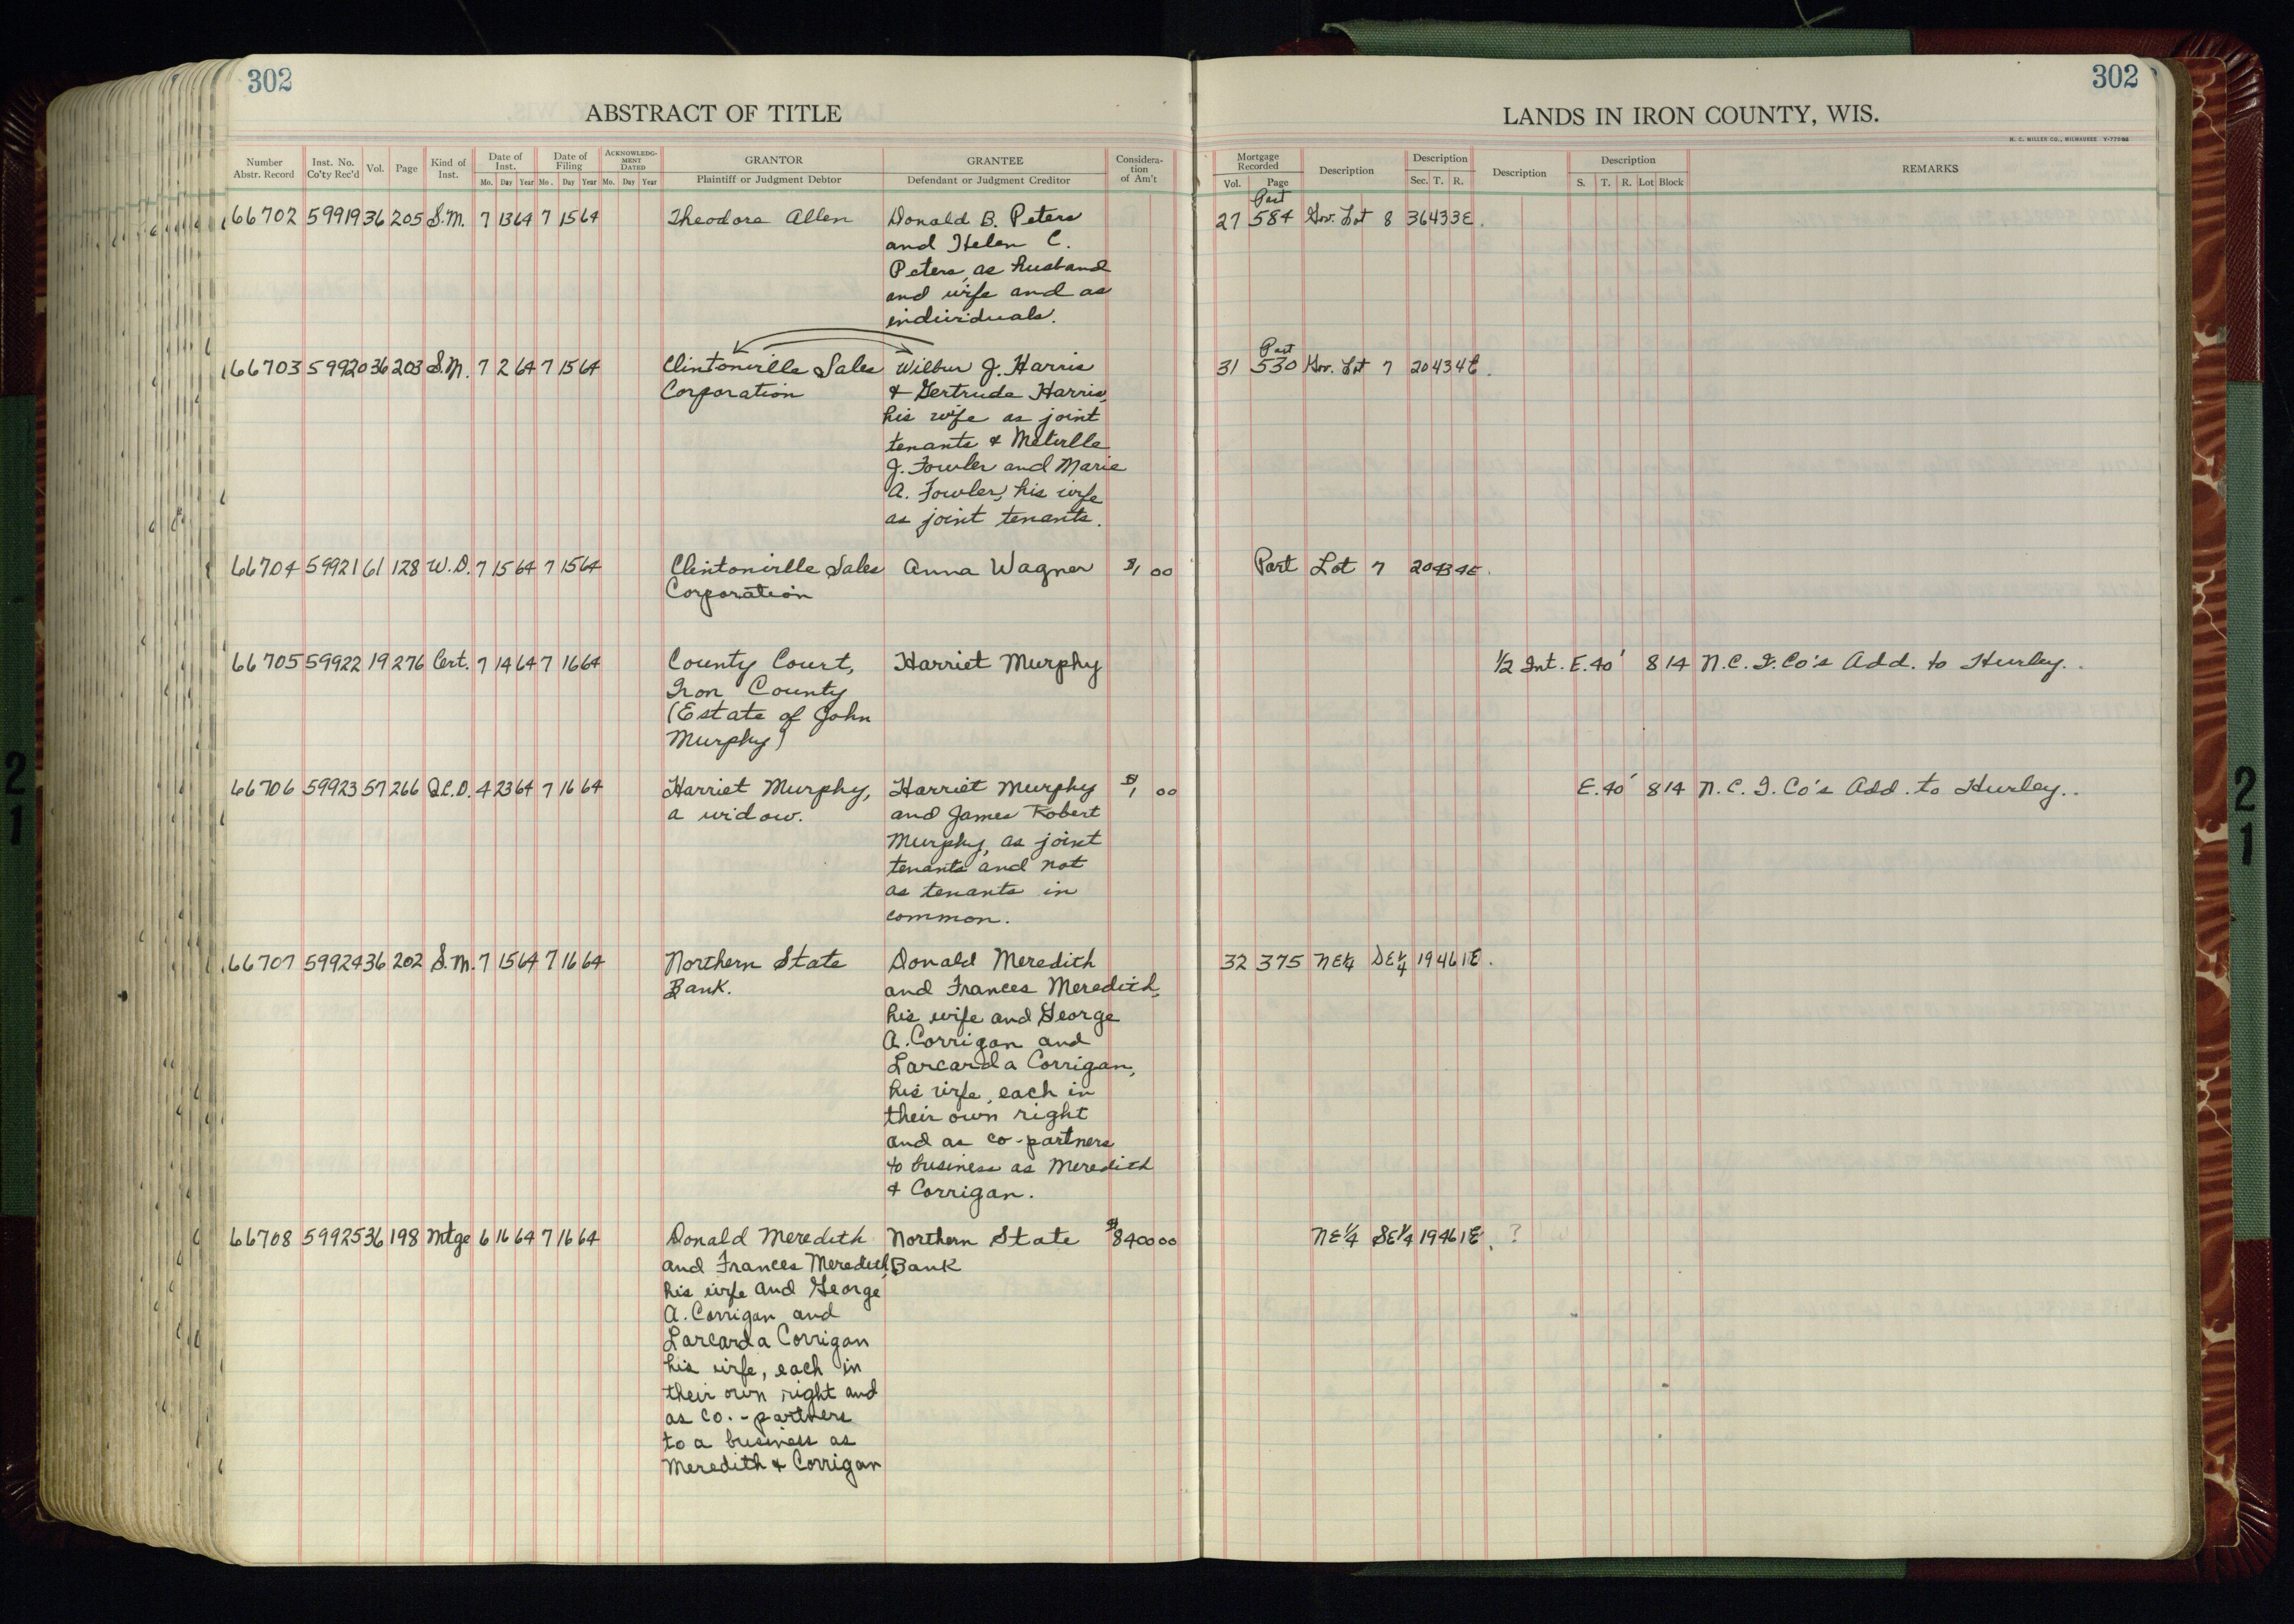 302
302
ABSTRACT OF TITLE
LANDS IN IRON COUNTY, WIS.
H. C. MILLER CO., MILWAUKEE
Number Abstr. Record Inst. No. Co'ty Rec'd Vol. Page Kind of Inst. Date of Inst. Mo. Day Year Date of Filing Mo. Day Year ACKNOWLEDGMENT DATED Mo. Day Year GRANTOR Plaintiff or Judgment Debtor GRANTEE Defendant or Judgment Creditor Consideration of Am't
Mortgage Recorded Vol. Page Description Description Sec. T. R. Description Description S. T. R. Lot Block REMARKS
Part
66702 59919 36 205 S.M. 7 13 64 7 15 64 Theodora Allen Donald B. Peters 27 584 Gov. Lot 8 36 43 3E.
and Helen C.
Peters, as husband
and wife and as
individuals.
Part
66703 59920 36 203 S.M. 7 2 64 7 15 64 Clintonville Sales Wilbur J. Harris 31 530 Gov. Lot 7 20 43 4E.
Corporation & Gertrude Harris,
his wife as joint
tenants & Melville
J. Fowler and Marie
A. Fowler, his wife
as joint tenants.
66704 59921 61 128 W.D. 7 15 64 7 15 64 Clintonville Sales Anna Wagner $1 00 Part Lot 7 20 43 4E.
Corporation
66705 59922 19 276 Cert. 7 14 64 7 16 64 County Court, Harriet Murphy 1/2 Int. E. 40' 8 14 N.C.I. Co's Add. to Hurley.
Iron County
(Estate of John
Murphy)
66706 59923 57 266 Q.C.D. 4 23 64 7 16 64 Harriet Murphy, Harriet Murphy $1 00 E. 40' 8 14 N.C.I. Co's Add. to Hurley.
a widow. and James Robert
Murphy, as joint
tenants and not
as tenants in
common.
66707 59924 36 202 S.M. 7 15 64 7 16 64 Northern State Donald Meredith 32 375 NE1/4 SE1/4 19 46 1E.
Bank. and Frances Meredith,
his wife and George
A. Corrigan and
Larcarda Corrigan,
his wife, each in
their own right
and as co-partners
to business as Meredith
& Corrigan.
66708 59925 36 198 Mtge 6 16 64 7 16 64 Donald Meredith Northern State $8400 00 NE1/4 SE1/4 19 46 1E. ?
and Frances Meredith, Bank
his wife and George
A. Corrigan and
Larcarda Corrigan
his wife, each in
their own right and
as co.-partners
to a business as
Meredith & Corrigan
21
21